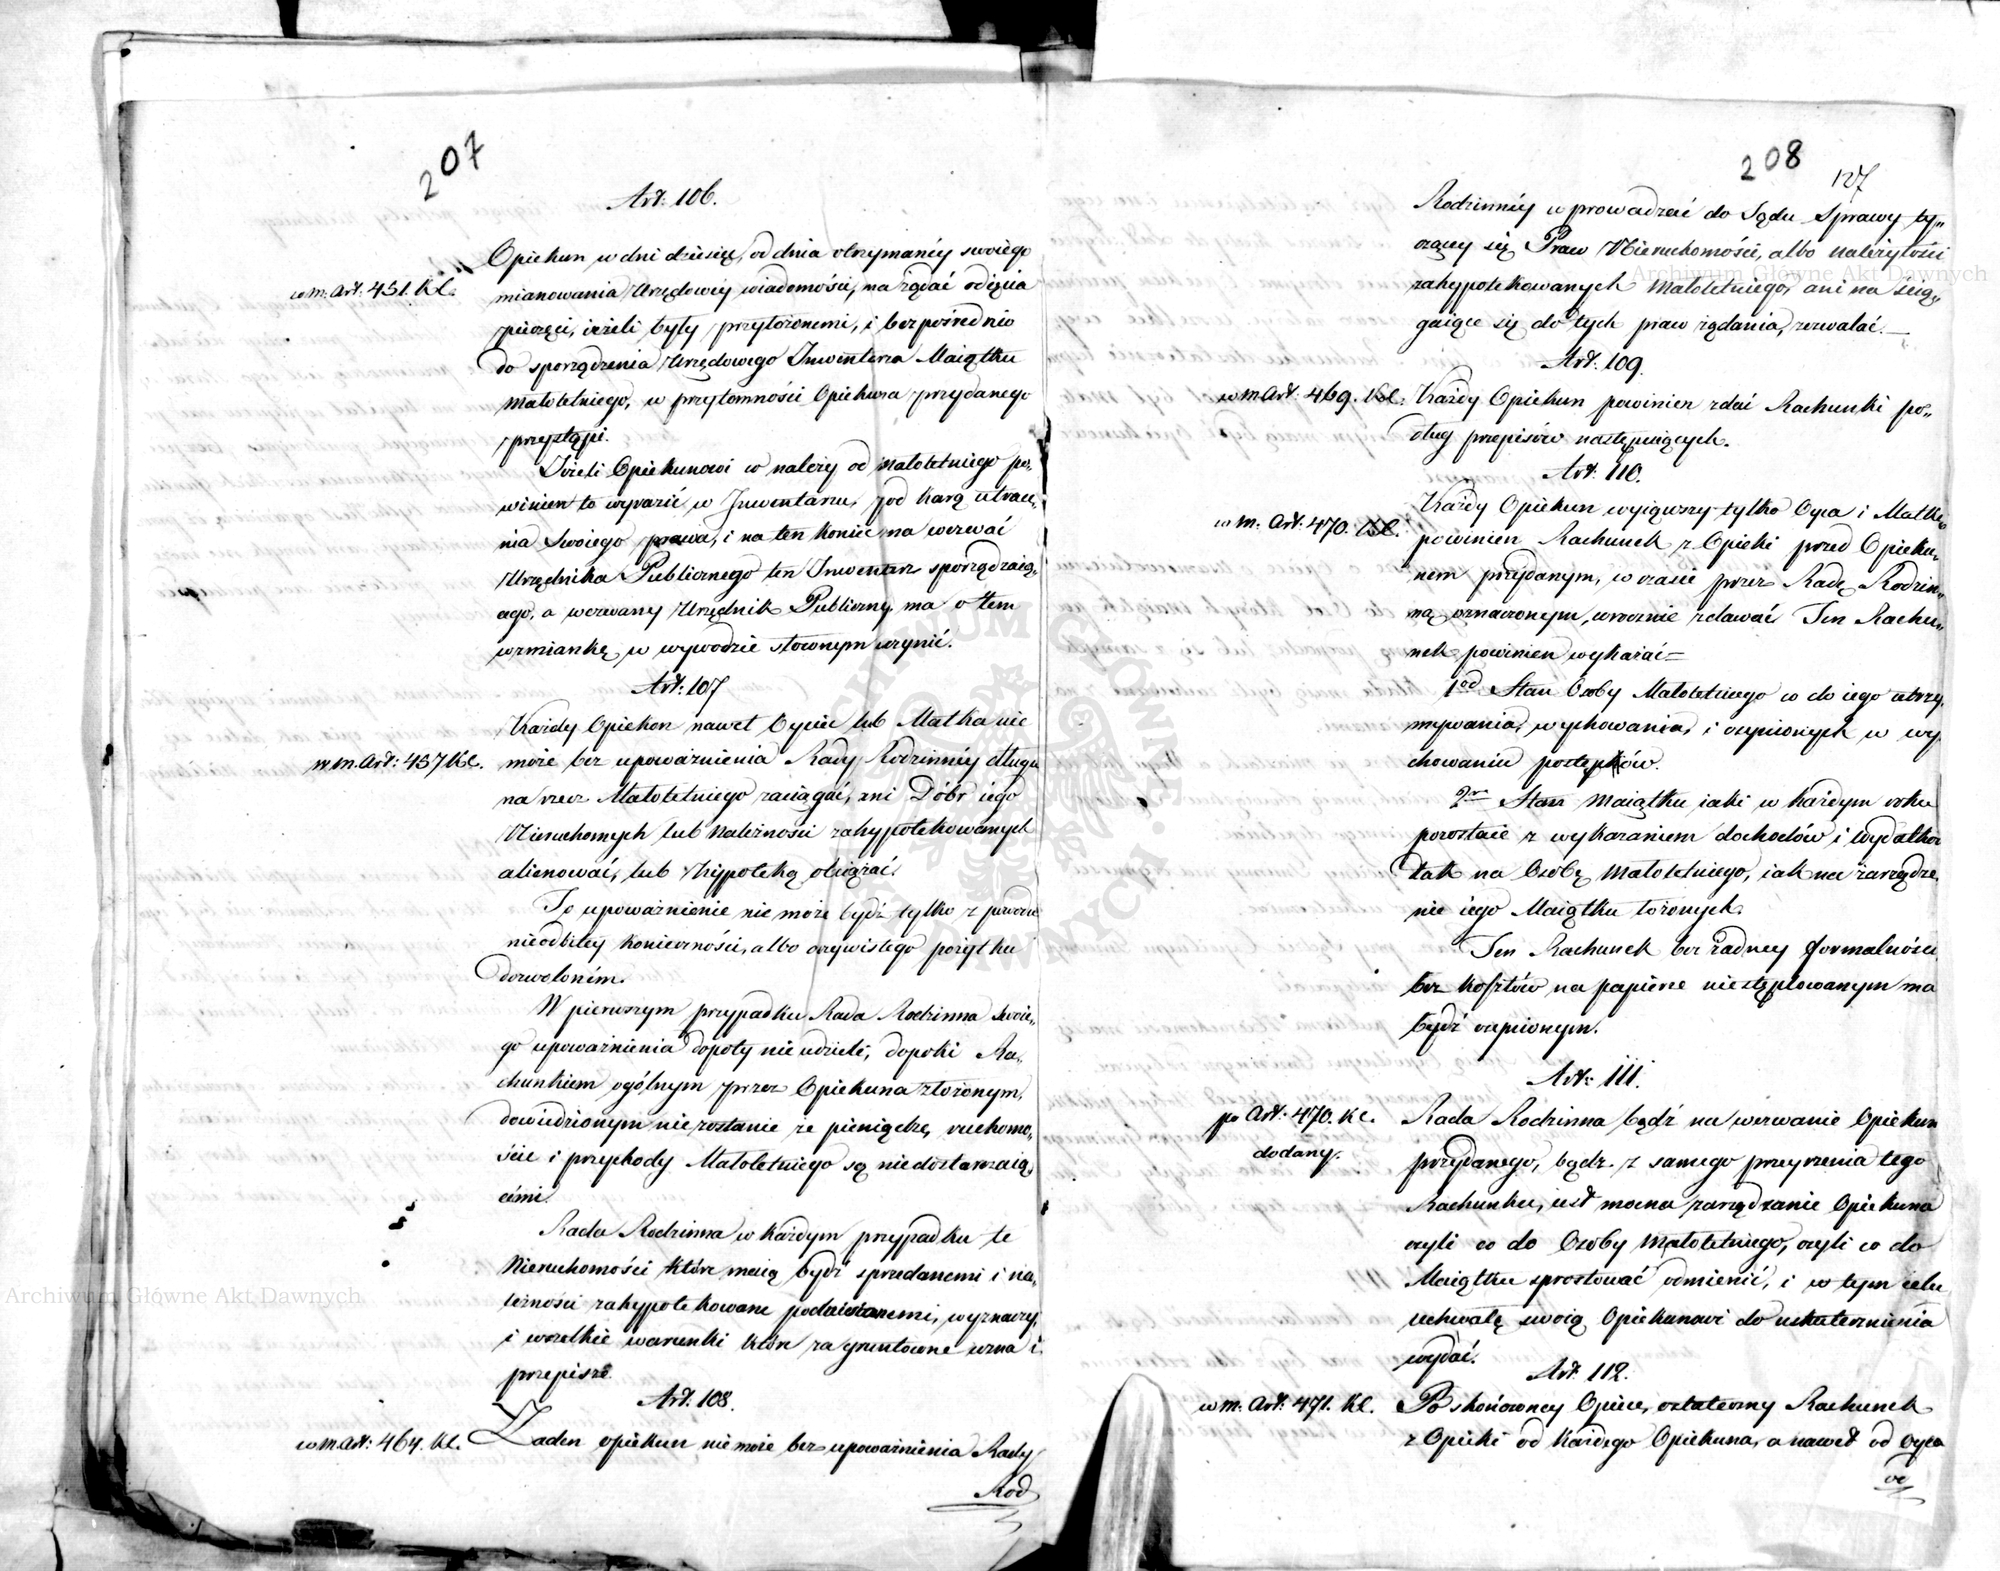 207
Art: 106.
Opiekun w dni dziesięć, od dnia otrzymanéy swoiego
w m. Art: 451. Kc.
mianowania Urzędowey wiadomości, ma żądać odjęcia
pieczęci, ieżeli były przyłożonemi, i bezpośrednio
do sporządzenia Urzędowego Inwentarza Maiątku
Małoletniego, w przytomności Opiekuna przydanego
przystąpi.
Jeżeli Opiekunowi co należy od Małoletniego po„
winien to wyrazić w Inwentarzu, pod karą utrace„
nia Swoiego prawa, i na ten koniec ma wezwać
Urzędnika Publicznego ten Inwentarz sporządzaią„
cego, a wezwany Urzędnik Publiczny ma o tem
wzmiankę w wywodzie słownym uczynić.
Art: 107
Każdy Opiekun nawet Oyciec lub Matka nie
w m. Art: 457 Kc.
może bez upoważnienia Rady Rodzinnéy długu
na rzecz Małoletniego zaciągać, ani Dóbr iego
Nieruchomych lub należności zahypotekowanych
alienować, lub Hypoteką obciążać.
To upoważnienie nie może bydź tylko z powodu
nieodbitey konieczności, albo oczywistego pożytku
dozwoloném.
W pierwszym przypadku Rada Rodzinna swoie„
go upoważnienia dopoty nie udzieli, dopoki Ra„
chunkiem ogólnym przez Opiekuna złożonym,
dowiedzionym nie zostanie że pieniądze, ruchomo„
ście i przychody Małoletniego są niedostarczaią„
cémi.
Rada Rodzinna w każdym przypadku te
Nieruchomości które maią bydź sprzedanemi i na„
leżności zahypotekowane wyznaczy,
i wszelkie warunki które za gruntowne uzna i
przepisze.
Art: 108.
w m. Art: 464. Kc.
Żaden opiekun nie może bez upoważnienia Rady
Rod
208
127
Rodzinnéy wprowadzać do Sądu Sprawy ty„
czącey się Praw Nieruchomości, albo należytości
zahypotekowanych Małoletniego, ani na ścią„
gaiące się do tych praw żądania, zezwalać.
Art: 109.
w m Art: 469. Kc.
Każdy Opiekun powinien zdać Rachunki po„
dług przepisów następuiących.
Art: 110.
Każdy Opiekun wyiąwszy tylko Oyca i Matkę
w m. Art: 470. Kc.
powinien Rachunek z Opieki przed Opieku„
nem przydanym, w czasie przez Radę Rodzin„
ną oznaczonym, corocznie zdawać. Ten Rachu„
nek powinien wykazać=
1od Stan Osoby Małoletniego co do iego utrzy„
mywania, wychowania, i czynionych w wy
chowaniu postępków.
2re Stan Maiątku iaki w każdym roku
pozostaie z wykazaniem dochodów i wydatków
tak na Osobę Małoletniego, iak na zarządze„
nie iego Maiątku łożonych.
Ten Rachunek bez żadney formalności,
bez kosztów na papierze niestęplowanym ma
bydź czynionym.
Art: 111.
po Art: 470. Kc.
dodany.
Rada Rodzinna bądź na wezwanie Opiekuna
przydanego, bądź z samego przeyrzenia tego
Rachunku, iest mocna zarządzanie Opiekuna
czyli co do Osoby Małoletniego, czyli co do
Maiątku sprostować odmienić, i w tym celu
uchwałę swoią Opiekunowi do uskutecznienia
wydać.
Art. 112.
w m. Art: 471. Kc.
Po skończoney Opiece, ostateczny Rachunek
z Opieki od każdego Opiekuna, a nawet od Oyca
od
Archiwum Główne Akt Dawnych
Archiwum Główne Akt Dawnych